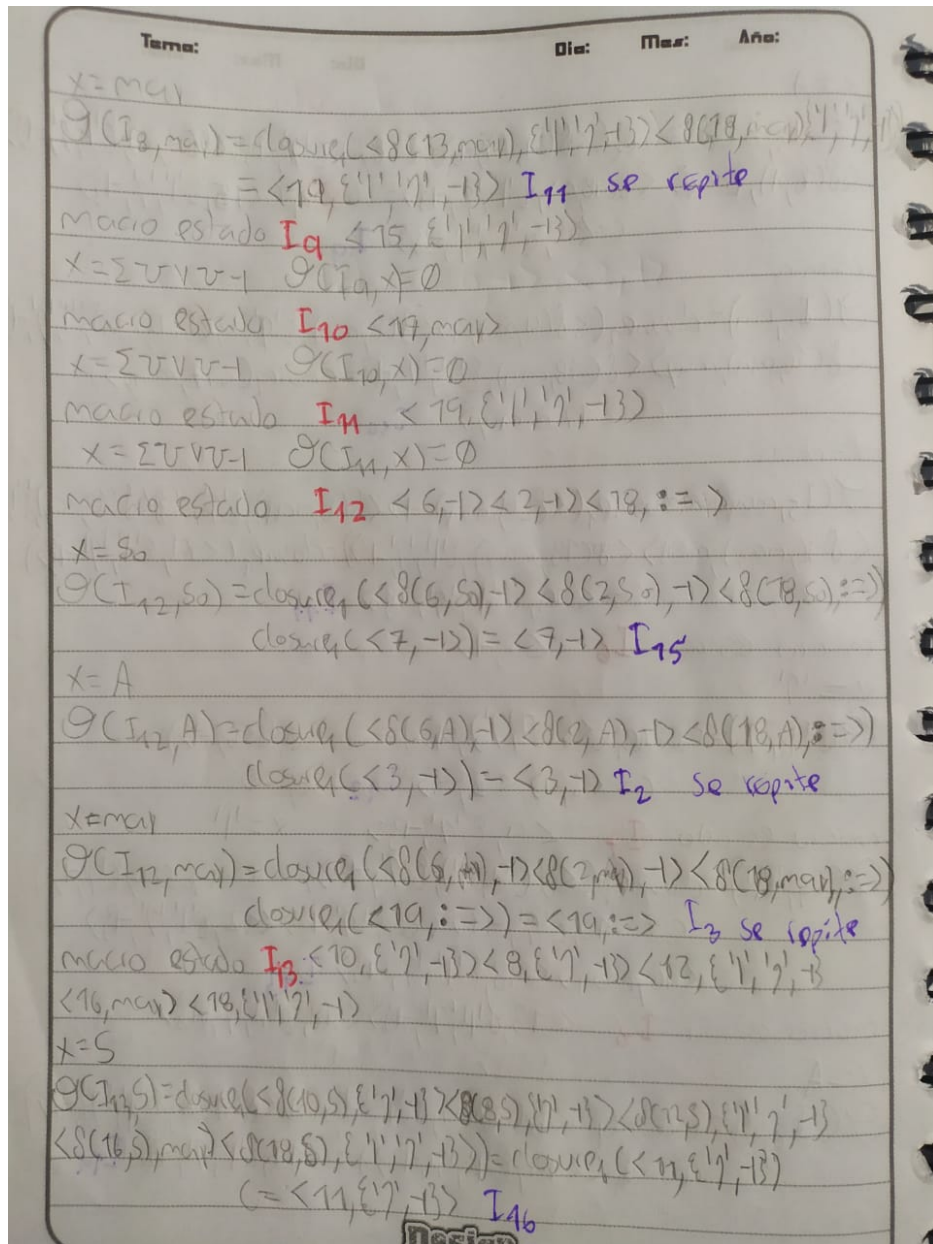 Tema: Dia: Mes: Año:
x=may
θ(I8,may)=closure1(<8(13,may),{'|','?',-1}><8(18,may),'|','?',-1)
=<19,{'|','?',-1}> I11 se repite
macro estado I9 <15,{'|','?',-1}>
x=ΣUVU-1 θ(I9,x)=∅
macro estado I10 <17,may>
x=ΣUVU-1 θ(I10,x)=∅
macro estado I11 <19,{'|','?',-1}>
x=ΣUVU-1 θ(I11,x)=∅
macro estado I12 <6,-1><2,-1><18,:=>
x=So
θ(I12,So)=closure1(<8(6,So),-1><8(2,So),-1><8(18,So),:=>)
closure1(<7,-1>)=<7,-1> I15
x=A
θ(I12,A)=closure1(<8(6,A),-1><8(2,A),-1><8(18,A),:=>)
closure1(<3,-1>)=<3,-1> I2 se repite
x=may
θ(I12,may)=closure1(<8(6,may),-1><8(2,may),-1><8(18,may),:=>)
closure1(<19,:=>)=<19,:=> I3 se repite
macro estado I13 <10,{'?',-1}><8,{'?',-1}><12,{'|','?',-1}
<16,may><18,{'|','?',-1>
x=S
θ(I12,S)=closure1(<8(10,S),{'?',-1}><8(8,S),{'?',-1}><8(12,S),{'|','?',-1}
<8(16,S),may><8(18,S),{'|','?',-1}>)=closure1(<11,{'?',-1})
(=<11,{'?',-1}> I16
Design